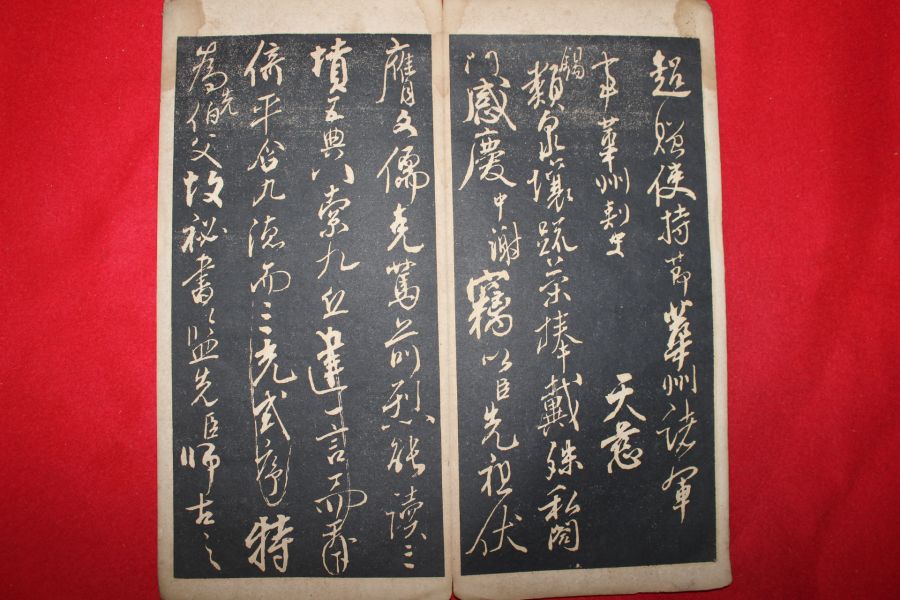 超贈使持節華州諸軍
事華州刺史 天慈
錫類泉壤疏榮捧戴殊私闔
門感慶中謝竊以臣先祖伏
膺文儒克篤前烈能讀三
墳五典八索九丘建一言而泰
階平含九德而三光式序特
為先伯父故祕書監先臣師古之